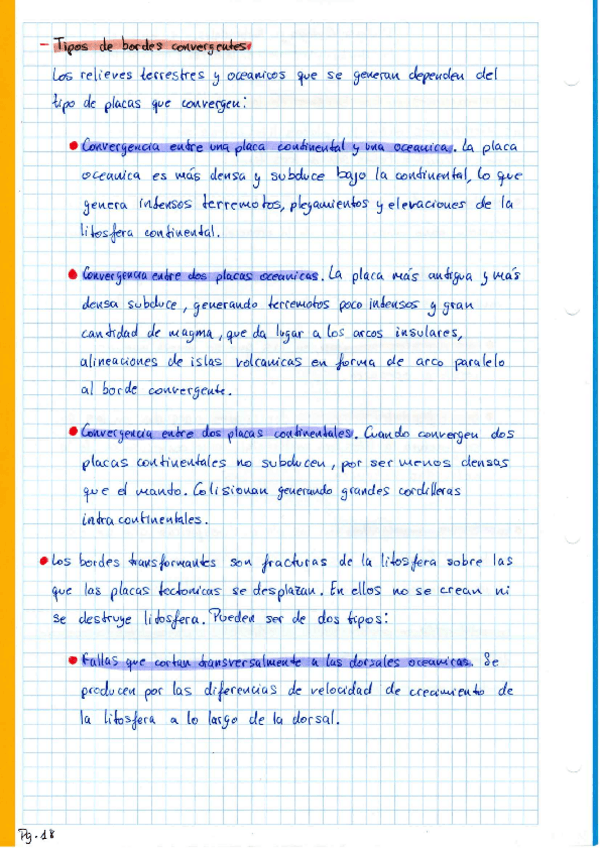 - Tipos de bordes convergentes.
Los relieves terrestres y oceanicos que se generan dependen del
tipo de placas que convergen:
• Convergencia entre una placa continental y una oceanica. La placa
oceanica es más densa y subduce bajo la continental, lo que
genera intensos terremotos, plegamientos y elevaciones de la
litosfera continental.
• Convergencia entre dos placas oceanicas. La placa más antigua y más
densa subduce, generando terremotos poco intensos y gran
cantidad de magma, que da lugar a los arcos insulares,
alineaciones de islas volcanicas en forma de arco paralelo
al borde convergente.
• Convergencia entre dos placas continentales. Cuando convergen dos
placas continentales no subducen, por ser menos densas
que el manto. Colisionan generando grandes cordilleras
intracontinentales.
• Los bordes transformantes son fracturas de la litosfera sobre las
que las placas tectonicas se desplazan. En ellos no se crean ni
se destruye litosfera. Pueden ser de dos tipos:
• Fallas que cortan transversalmente a las dorsales oceanicas. Se
producen por las diferencias de velocidad de crecimiento de
la litosfera a lo largo de la dorsal.
Pg. 18